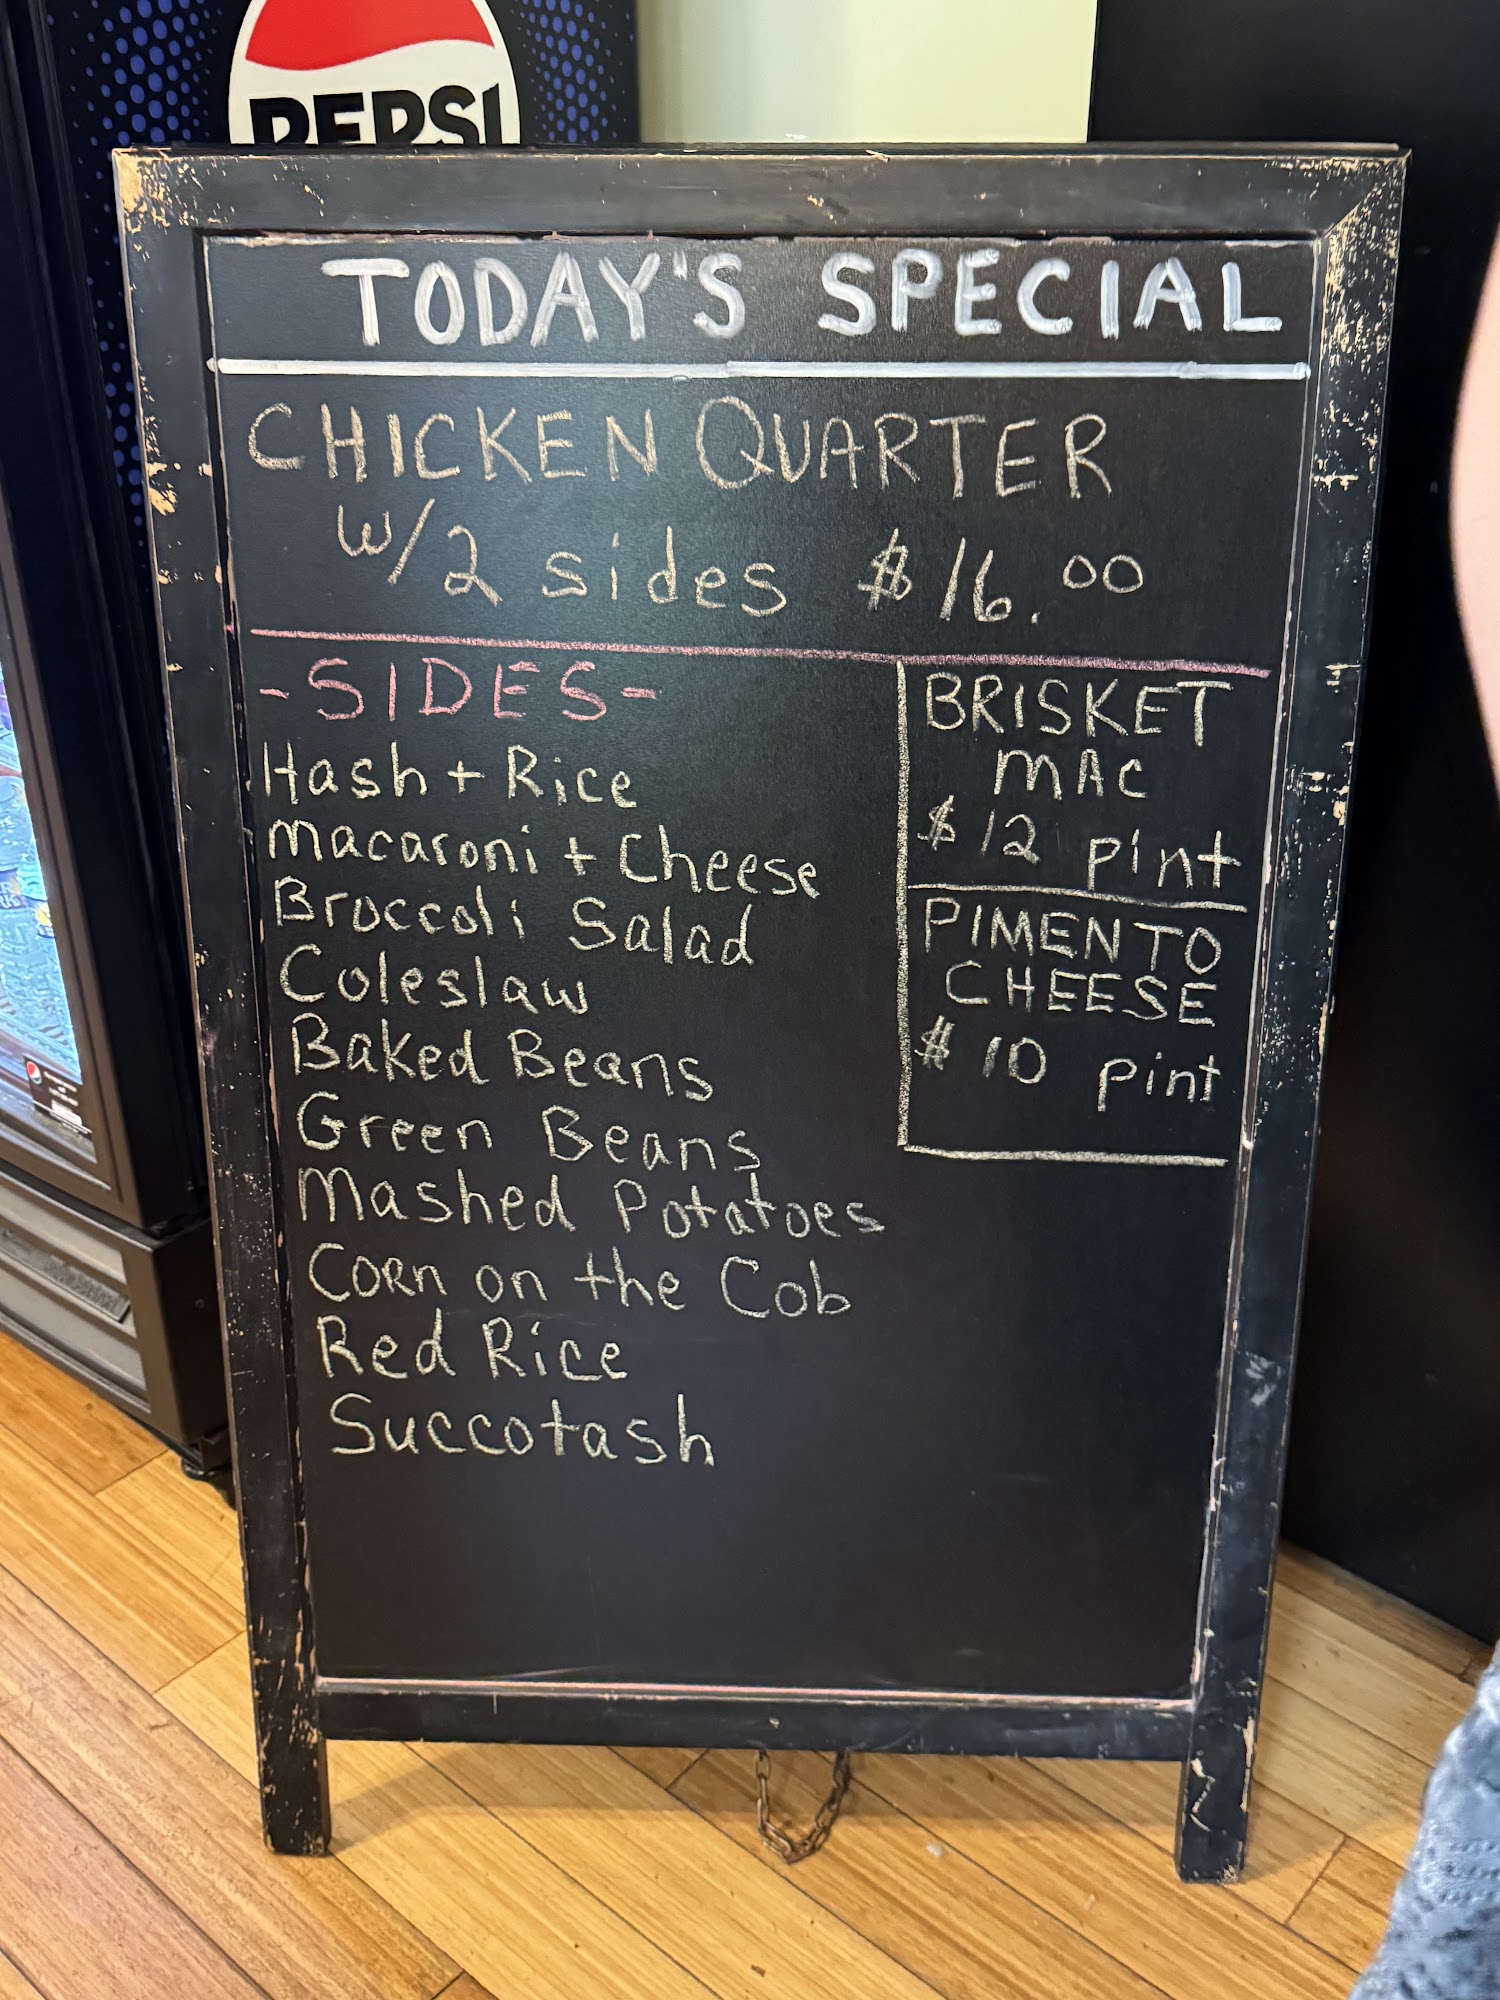 PEPSI
TODAY'S SPECIAL
CHICKEN QUARTER
w/2 sides $16.00
-SIDES-
Hash + Rice
Macaroni + Cheese
Broccoli Salad
Coleslaw
Baked Beans
Green Beans
Mashed Potatoes
Corn on the Cob
Red Rice
Succotash
BRISKET
MAC
$12 pint
PIMENTO
CHEESE
$10 pint